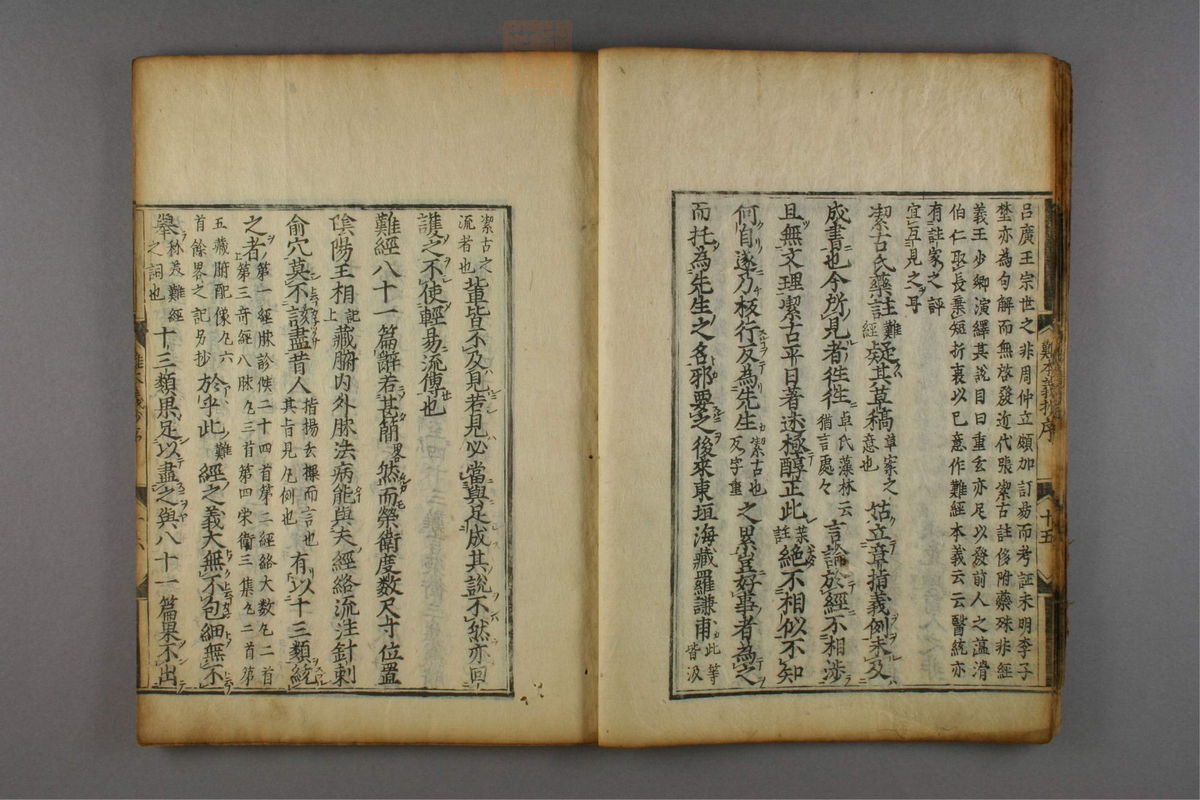 呂廣王宗世之非周仲立頗加訂易而考証未明李子
埜亦為句解而無啓發近代張潔古註後附藥殊非經
義王少卿演繹其說目曰重玄亦足以發前人之蘊滑
伯仁取長棄短折衷以已意作難經本義云云醫統亦
有註家之評
宜互見之耳
潔古氏藥註難經疑其草稿草案之意也姑立章指義例未及
成書也今所見者徃徃卓氏藻林云猶言處々言論於經不相渉
且無文理潔古平日著述極醇正此藥註絶不相似不知
何自遂乃板行反為先生潔古也反字重之累豈好事者為之
而托為先生之名邪要之後來東垣海藏羅謙甫此等皆汲
難本義抄序
十五
潔古之流者也輩皆不及見若見必當與足成其說不然亦回
護之不使輕易流傳也
難經八十一篇辭若甚簡畧然而榮衛度数尺寸位置
陰陽王相上記藏腑内外脉法病能與夫經絡流注針刺
俞穴莫不該盡昔人指揚玄操而言也其旨見凡例也有以十三類統
之者第一經脉診候二十四首第二經絡大数凡二首
第三奇經八脉凡三首第四栄衛三集凡二首第
五藏腑配像凡六
首餘畧之記另抄於乎此難經之義大無不包細無不
舉称美難經之詞也十三類果足以盡之與八十一篇果不出